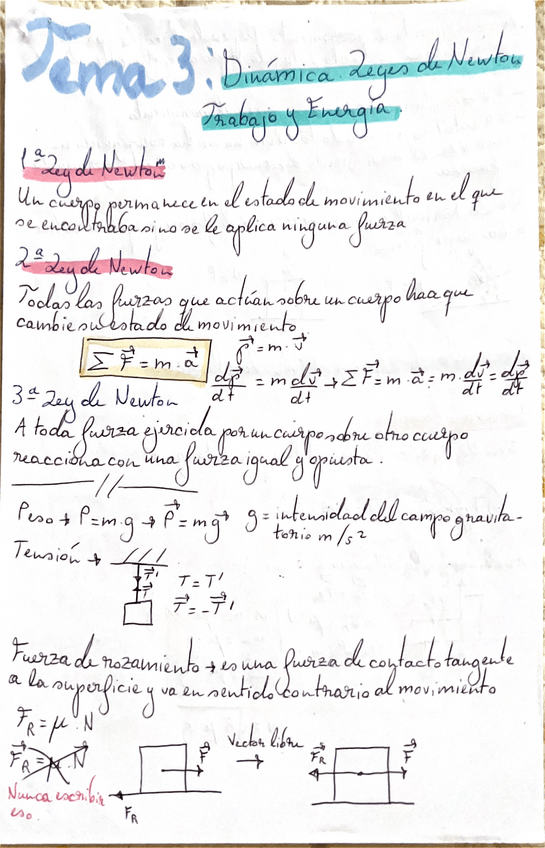 Tema 3: Dinámica. Leyes de Newton
Trabajo y Energía.
1ª Ley de Newton
Un cuerpo permanece en el estado de movimiento en el que
se encontraba si no se le aplica ninguna fuerza
2ª Ley de Newton
Todas las fuerzas que actúan sobre un cuerpo haa que
cambie su estado de movimiento
p⃗ = m · v⃗
∑ F⃗ = m · a⃗
dp⃗/dt = m dv⃗/dt → ∑ F⃗ = m · a⃗ = m · dv⃗/dt = dp⃗/dt
3ª Ley de Newton
A toda fuerza ejercida por un cuerpo sobre otro cuerpo
reacciona con una fuerza igual y opuesta.
Peso → P = m · g → P⃗ = m g⃗ g = intensidad del campo gravita-
torio m/s²
Tensión →
T⃗'
T⃗
T = T'
T⃗ = -T⃗'
Fuerza de rozamiento → es una fuerza de contacto tangente
a la superficie y va en sentido contrario al movimiento
F_R = μ · N
F⃗_R = μ · N⃗
Nunca escribir
eso.
F⃗
F_R
Vector libre
→
F⃗_R
F⃗